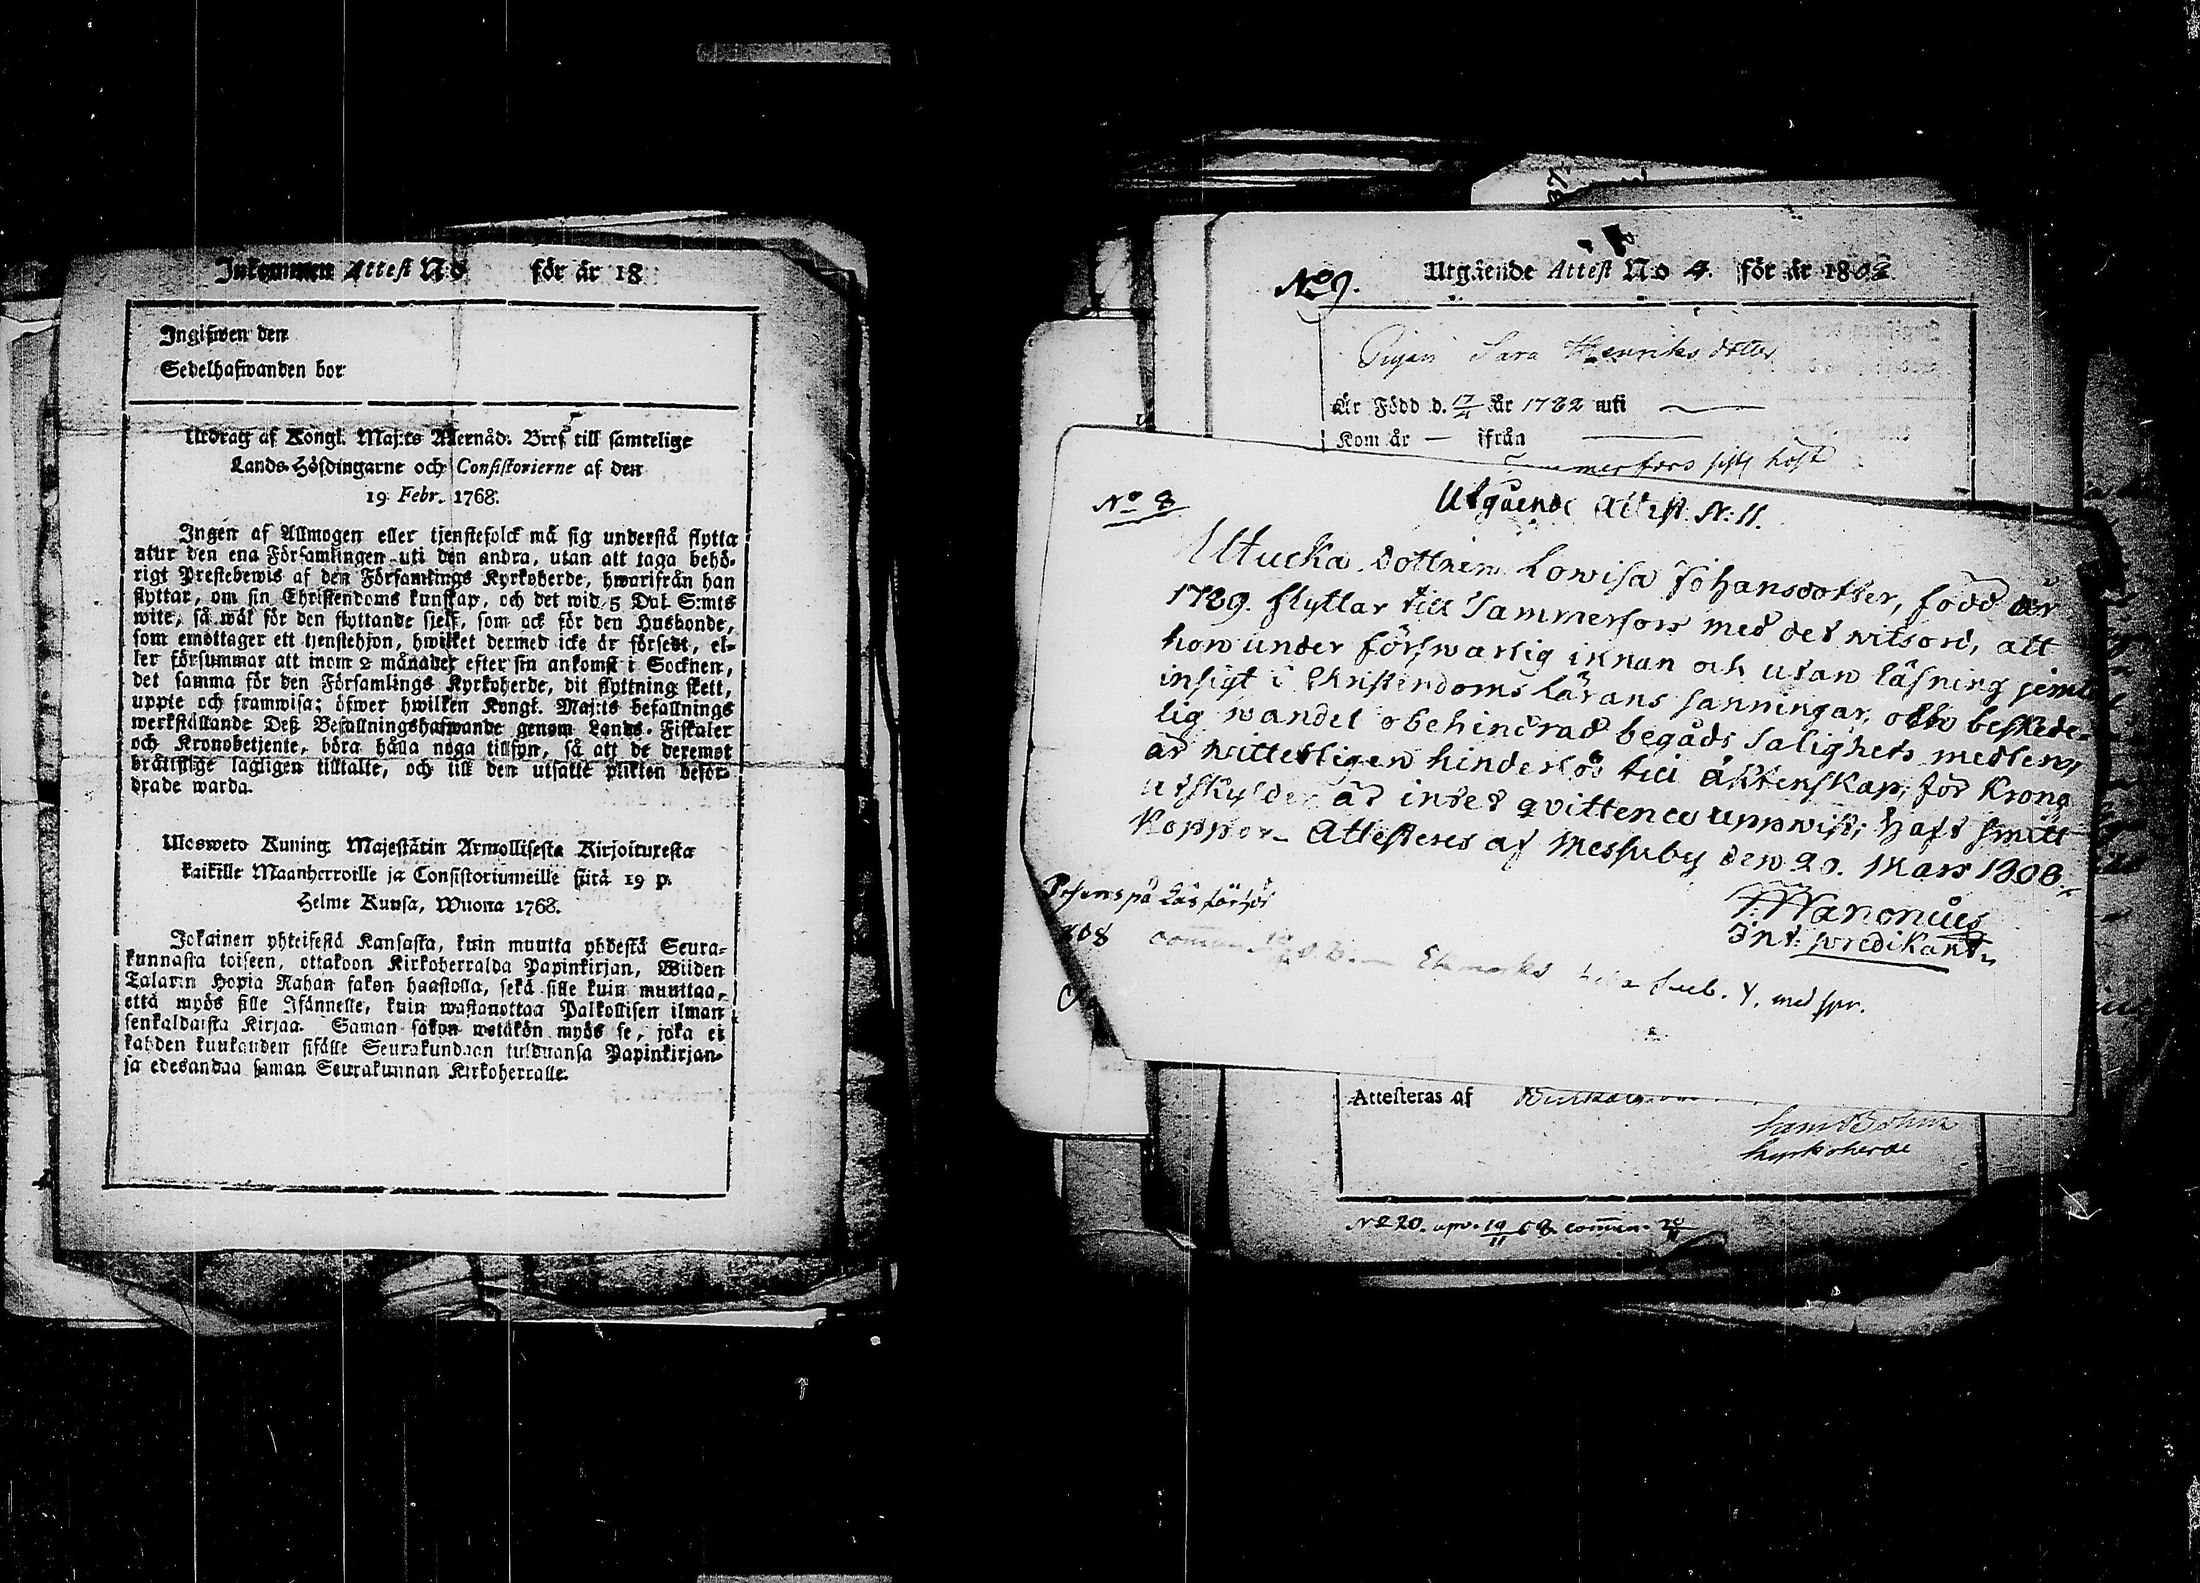 Inkommen Attest No för år 18
Ingifwen den
Sedelhafwanden bor
Utdrag af Kongl. Maj:ts Allernåd. Bref till samtelige
Lands-Höfdingarne och Consistorierne af den
19 Febr. 1768.
Ingen af Allmogen eller tjenstefolck må sig understå flytta
utur den ena Församlingen uti den andra, utan att taga behö-
rigt Prestebewis af den Församlings Kyrkoherde, hwarifrån han
flyttar, om sin Christendoms kunskap, och det wid 5 Dal. S:mts
wite, så wäl för den flyttande sjelf, som ock för den Husbonde,
som emottager ett tjenstehjon, hwilket dermed icke är försedt, el-
ler försummar att inom 2 månader efter sin ankomst i Socknen,
det samma för den Församlings Kyrkoherde, dit flyttning skett,
uppte och framwisa; öfwer hwilken Kongl. Maj:ts befallnings
werkställande Deß Befallningshafwande genom Lands-Fiskaler
och Kronobetjente, böra hålla noga tillsyn, så att de deremot
brättslige lagligen tilltalte, och till den utsatte plikten befor-
drade warda.
Ulosweto Kuning: Majestätin Armollisesta Kirjoituxesta
kaikille Maanherroille ja Consistoriumeille siitä 19 p.
Helme Kuusa, Wuona 1768.
Jokainen yhteisestä Kansasta, kuin muutta yhdestä Seura-
kunnasta toiseen, ottakoon Kirkoherralda Papinkirjan, Wiiden
Talarin Hopia Rahan sakon haastolla, sekä sille kuin muuttaa,
että myös sille Isännelle, kuin wastanottaa Palkollisen ilman
senkaldaista Kirjaa. Saman sakon wetäkön myös se, joka ei
kahden kuukauden sisälle Seurakundaan tulduansa Papinkirjan-
sa edesandaa saman Seurakunnan Kirkoherralle.
No 9.
Utgående Attest No 4. för år 1808
Pigan Sara Henriksdotter
Är Född d. 17/11 år 1782 uti
Kom år — ifrån
höst
No 8
Utgående Attest N: 11.
dottren Lowisa Johansdotter, född år
1789. flyttar till Tammerfors med det witsord, att
hon under förswarlig innan och utan läsning jemte
insigt i Christendoms Lärans sanningar, och beskede-
lig wandel obehindrad begådt Salighets medlen,
är witterligen hinderlös till Äktenskap, för Krono
utskylder är intet qvittence uppwist; haft smitt
Koppor. Attesteres af Messuby den 20. Mars 1808.
Wanonius
Int: predikant.
på Läsförhör
808
med spr.
Attesteras af
Sam Bohm
Kyrkoherde
No 20.